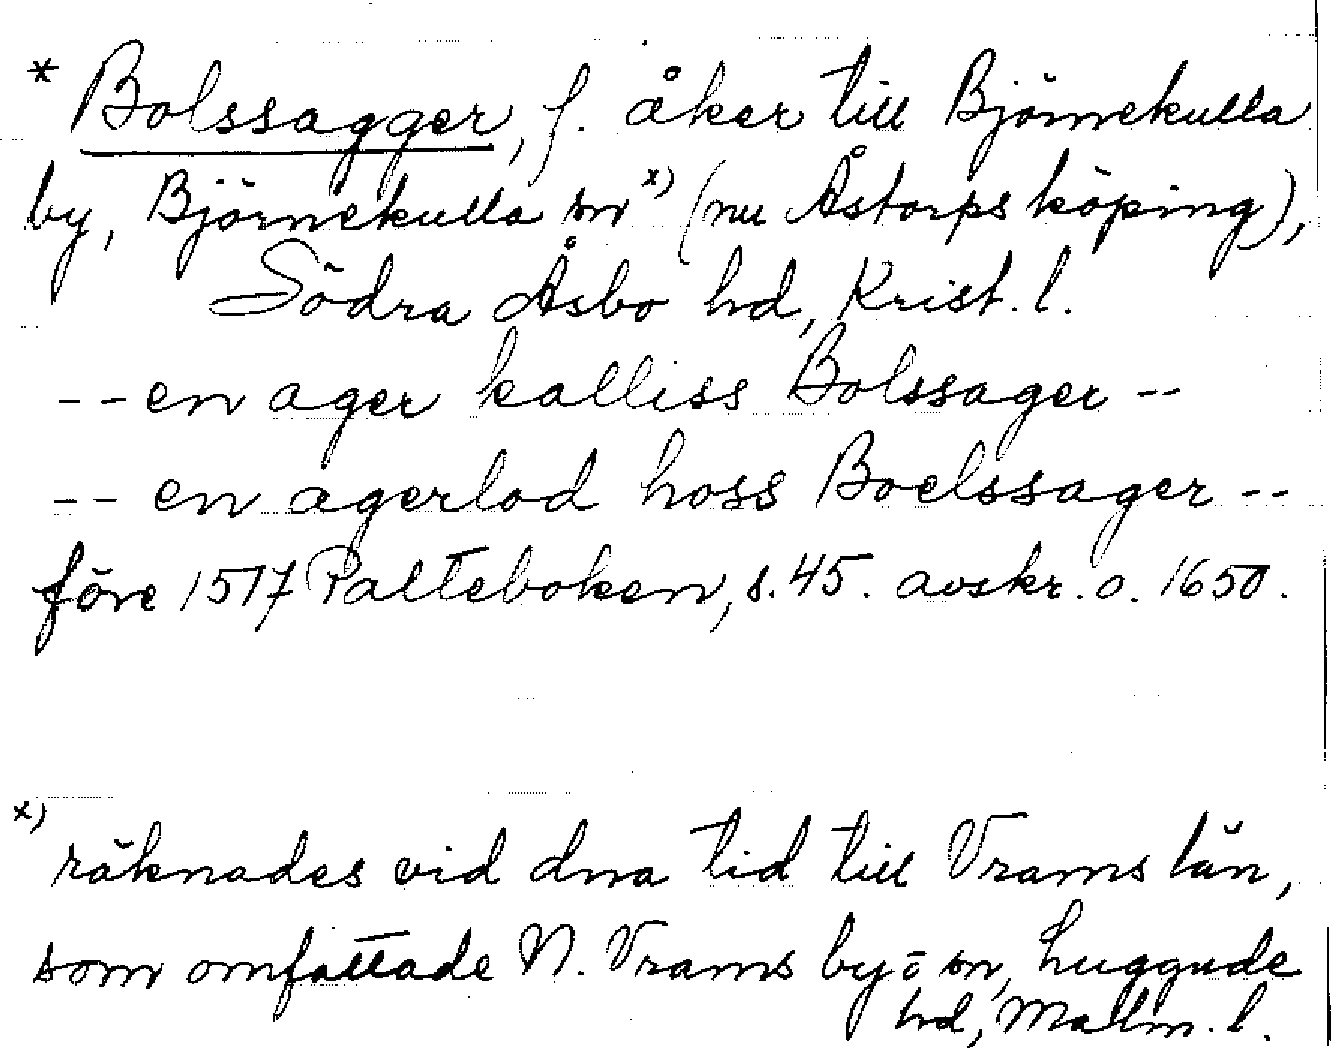 * Bolssagger, f. åker till Björnekulla
by, Björnekulla sn x) (nu Åstorps köping),
Södra Åsbo hd, Krist. l.
-- en ager kalliss Bolssager --
-- en agerlod hoss Boelssager --
före 1517 Palteboken, s. 45. avskr. o. 1650.
x)
räknades vid dna tid till Vrams län,
som omfattade N. Vrams by o sn, Luggude
hd, Malm. l.